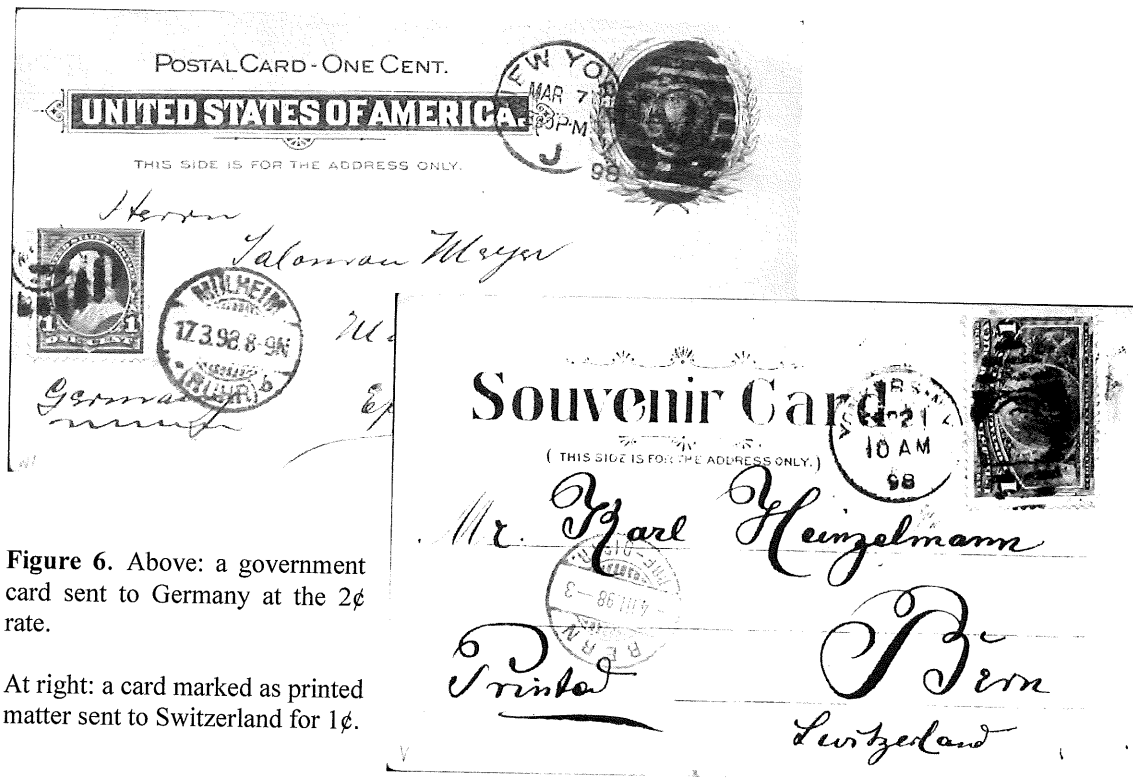 POSTAL CARD - ONE CENT.
UNITED STATES OF AMERICA.
THIS SIDE IS FOR THE ADDRESS ONLY.
NEW YORK
MAR 7
PM
J
98
Herrn
Salomon Meyer
1 1
ONE CENT
MÜLHEIM
17.3.98.8-9N
(RUHR) 6
Germany
Souvenir Card
( THIS SIDE IS FOR THE ADDRESS ONLY. )
21
10 AM
98
Mr. Karl Heinzelmann
BERN
Printed
Bern
Switzerland
Figure 6. Above: a government
card sent to Germany at the 2¢
rate.
At right: a card marked as printed
matter sent to Switzerland for 1¢.